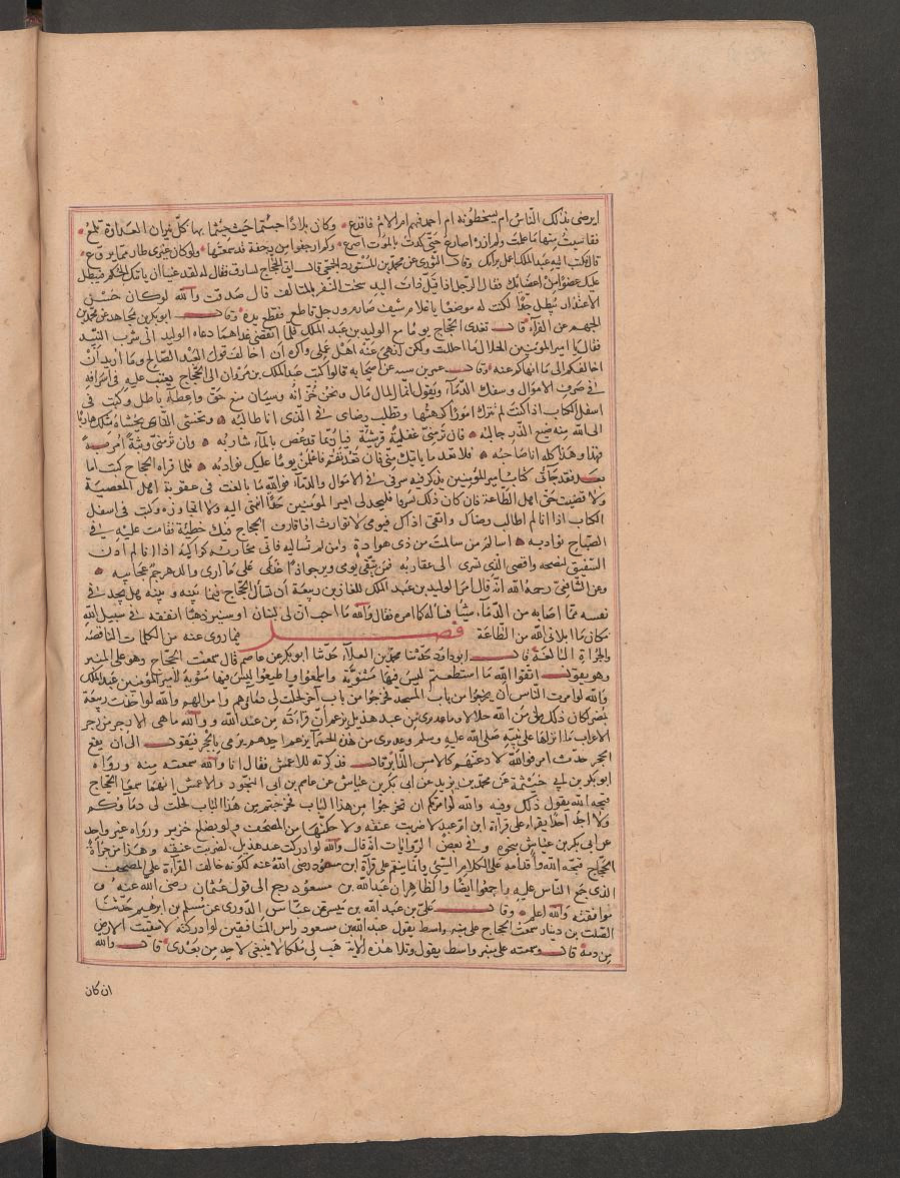 ايرضى بذلك الناس ام يسخطونه ام احمد فيهم ام الام فاقدع وكان بلادا جئتها حيث جئتها بها كل نيران العداوة تلمع
فقاسيت منها ما علمت ولم ازل اصارع حتى كدت بالموت اصرع وكم ارجفوا من رجفة قد سمعتها ولو كان غيرى طار مما يروع
قال فكتب اليه عبد الملك اعمل برايك وقال الثورى عن محمد بن المستورد الجمحى قال اتى الحجاج بسارق فقال له لقد كنت غنيا ان ياتيك الحكم فيبطل
عليك عضوا من اعضائك فقال الرجل اذا قل ذات اليد سخت النفس بالمتالف قال صدقت والله لو كان حسن
الاعتذار يبطل حدا لكنت له موضعا يا غلام سيف صارم ورجل قاطع فقطع يده وقال ابو بكر بن مجاهد عن محمد بن
الجهم عن الفراء قال تغدى الحجاج يوما مع الوليد بن عبد الملك فلما انقضى غداهما دعاه الوليد الى شرب النبيذ
فقال يا امير المؤمنين الحلال ما احللت ولكن انهى عنه اهل عملى واكره ان اخالف قول العبد الصالح وما اريد ان
اخالفكم الى ما انهاكم عنه وقال عمر بن شبه عن اصحابه قالوا كتب عبد الملك بن مروان الى الحجاج يعتب عليه فى اسرافه
فى صرف الاموال وسفك الدماء ويقول انما المال مال الله ونحن خزانه وسيان منع حق واعطاء باطل وكتب فى
اسفل الكتاب اذا انت لم تترك امورا كرهتها وتطلب رضاى فى الذى انا طالبه وتخشى الذى يخشاه مثلك هاربا
الى الله منه ضيع الدر جالبه فان تر منى غفلة قرشية فيا ربما قد غص بالماء شاربه وان تر منى وثبة اموية
فهذا وهذا كله انا صاحبه فلا تعد ما ياتيك منى فان تعد تقم فاعلمن يوما عليك نوادبه فلما قراه الحجاج كتب اما
بعد فقد جاءنى كتاب امير المؤمنين يذكر فيه سرفى فى الاموال والدماء فوالله ما بالغت فى عقوبة اهل المعصية
ولا قضيت حق اهل الطاعة فان كان ذلك سرفا فليحد لى امير المؤمنين حدا انتهى اليه ولا اتجاوزه وكتب فى اسفل
الكتاب اذا انا لم اطلب رضاك واتقى اذاك فيومى لا توارت كواكبه اذا قارف الحجاج فيك خطية فقامت عليه فى
الصباح نوادبه اسالم من سالمت من ذى هوادة ومن لم تسالمه فانى محاربه اذا انا لم ادن
الشفيق لنصحه واقصى الذى تسرى الى عقاربه فمن يتقى يومى ويرجو اذا غدى على ما ارى والدهر جم عجايبه
وعن الشافعى رحمه الله انه قال قال الوليد بن عبد الملك للغاز بن ربيعة ان تسال الحجاج فيما بينه وبينه هل يجد فى
نفسه مما اصابه من الدماء شيئا فساله كما امره فقال والله ما احب ان لى لبنان او سنير ذهبا انفقه فى سبيل الله
مكان ما ابلانى الله من الطاعة فصل فيما روى عنه من الكلمات الناقصة
والجراة البالغة قال ابو داود حدثنا محمد بن العلاء حدثنا ابو بكر عن عاصم قال سمعت الحجاج وهو على المنبر
وهو يقول اتقوا الله ما استطعتم ليس فيها مثنوية واسمعوا واطيعوا ليس فيها مثنوية لامير المؤمنين عبد الملك
والله لو امرت الناس ان يخرجوا من باب المسجد فخرجوا من باب اخر لحلت لى دماؤهم واموالهم والله لو اخذت ربيعة
بمضر كان ذلك لى من الله حلالا وما عذيرى من عبد هذيل يزعم ان قراءته من عند الله والله ما هى الا رجز من رجز
الاعراب ما انزلها على نبيه صلى الله عليه وسلم وعذيرى من هذه الحمرا يزعم احدهم يرمى بالحجر فيقول الى ان يقع
الحجر حدث امر فوالله لادعنهم كالامس الدابر قال فذكرته للاعمش فقال انا والله سمعته منه ورواه
ابو بكر بن ابى خيثمة عن محمد بن يزيد عن ابى بكر بن عياش عن عاصم بن ابى النجود والاعمش انهما سمعا الحجاج
قبحه الله يقول ذلك وفيه والله لو امرتكم ان تخرجوا من هذا الباب فخرجتم من هذا الباب لحلت لى دماؤكم
ولا اجد احدا يقراء على قراءة ابن ام عبد الا ضربت عنقه ولا حكنها من المصحف ولو بضلع خنزير ورواه غير واحد
عن ابى بكر بن عياش بنحوه وفى بعض الروايات انه قال والله لو ادركت عبد هذيل لضربت عنقه وهذا من جراة
الحجاج قبحه الله واقدامه على الكلام السيئ وانما نقم على قراة ابن مسعود رضى الله عنه لكونه خالف القراءة على المصحف
الذى جمع الناس عليه راجعوا ايضا والظاهر ان عبد الله بن مسعود رجع الى قول عثمان رضى الله عنه و
موافقته والله اعلم وقال على بن عبد الله بن مبشر عن عباس الدورى عن مسلم بن ابرهيم حدثنا
الصلت بن دينار سمعت الحجاج على منبر واسط يقول عبد الله بن مسعود راس المنافقين لو ادركته لاسقيت الارض
من دمه قال وسمعته على منبر واسط يقول وتلا هذه الاية هب لى ملكا لا ينبغى لاحد من بعدى قال والله
ان كان